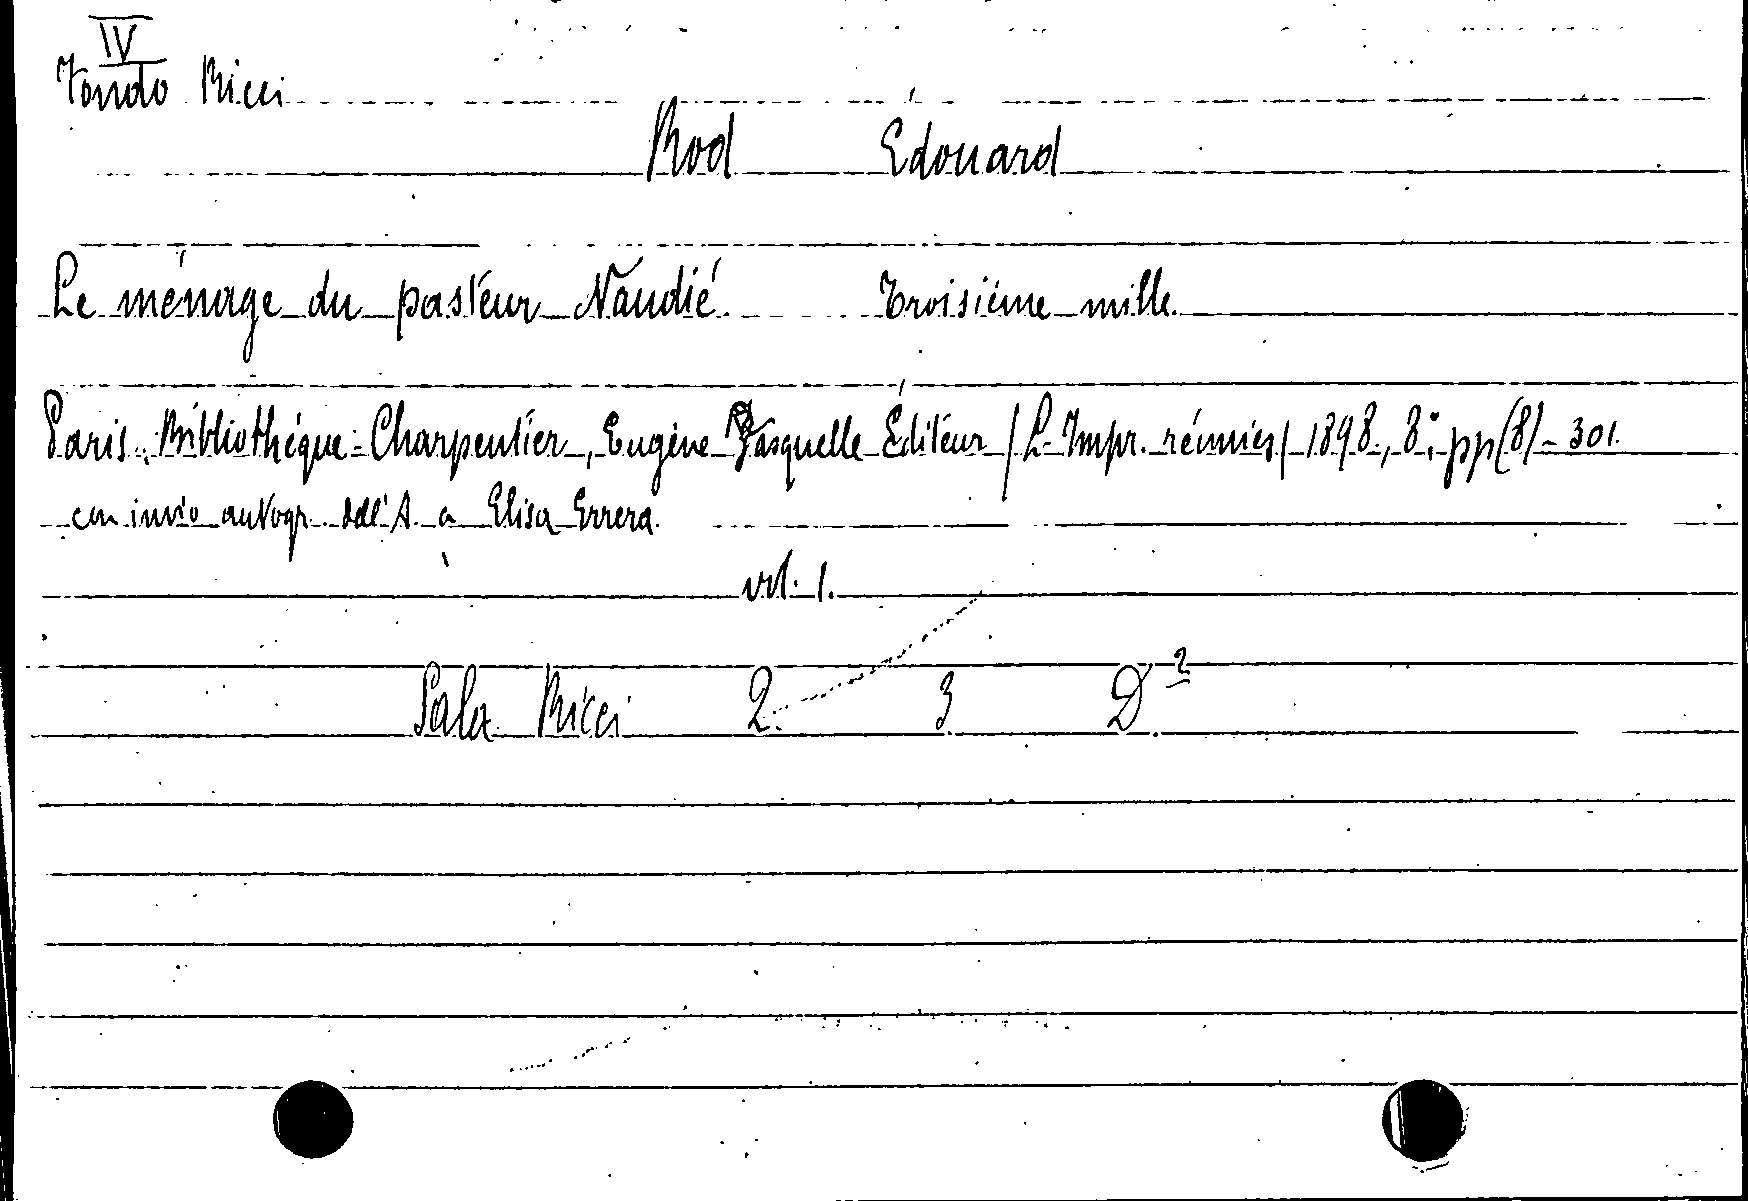 IV
Fondo Ricci
Rod Édouard
Le ménage du pasteur Naudié. Troisième mille.
Paris, Bibliothèque-Charpentier, Eugène Fasquelle Éditeur / L-Impr. réunies / 1898., 8° pp (8) - 301.
con invio autogr. dell'A. a Elisa Errera.
vol. 1.
Sala Ricci 2. 3. D.²